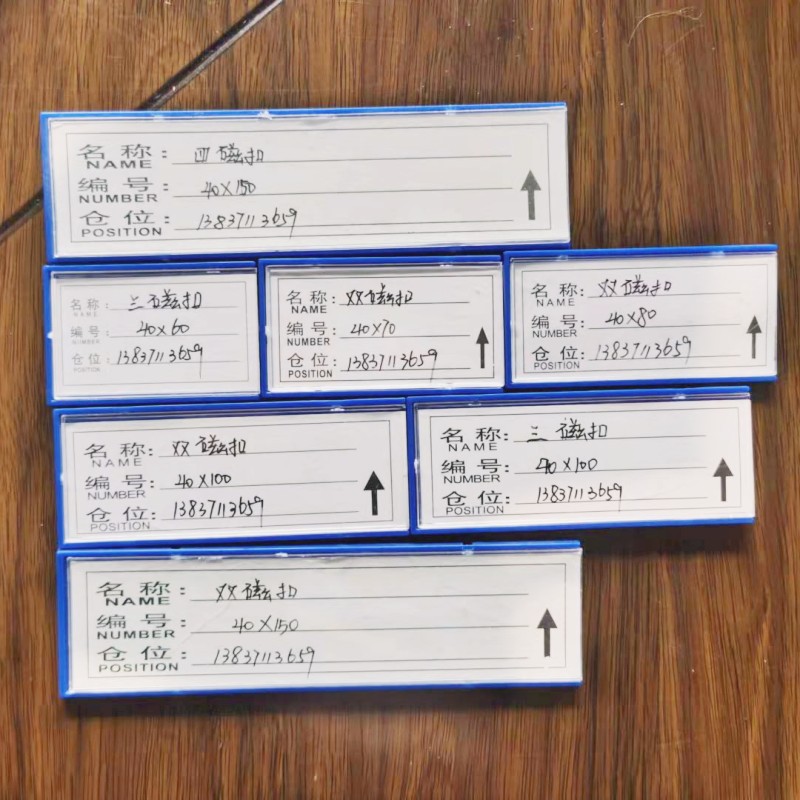 名称: 四磁扣
NAME
编号: 40×150
NUMBER
仓位: 13837113659
POSITION
名称: 三磁扣
NAME
编号: 40×60
NUMBER
仓位: 13837113659
POSITION
名称: 双磁扣
NAME
编号: 40×70
NUMBER
仓位: 13837113659
POSITION
名称: 双磁扣
NAME
编号: 40×80
NUMBER
仓位: 13837113659
POSITION
名称: 双磁扣
NAME
编号: 40×100
NUMBER
仓位: 13837113659
POSITION
名称: 三磁扣
NAME
编号: 40×100
NUMBER
仓位: 13837113659
POSITION
名称: 双磁扣
NAME
编号: 40×150
NUMBER
仓位: 13837113659
POSITION